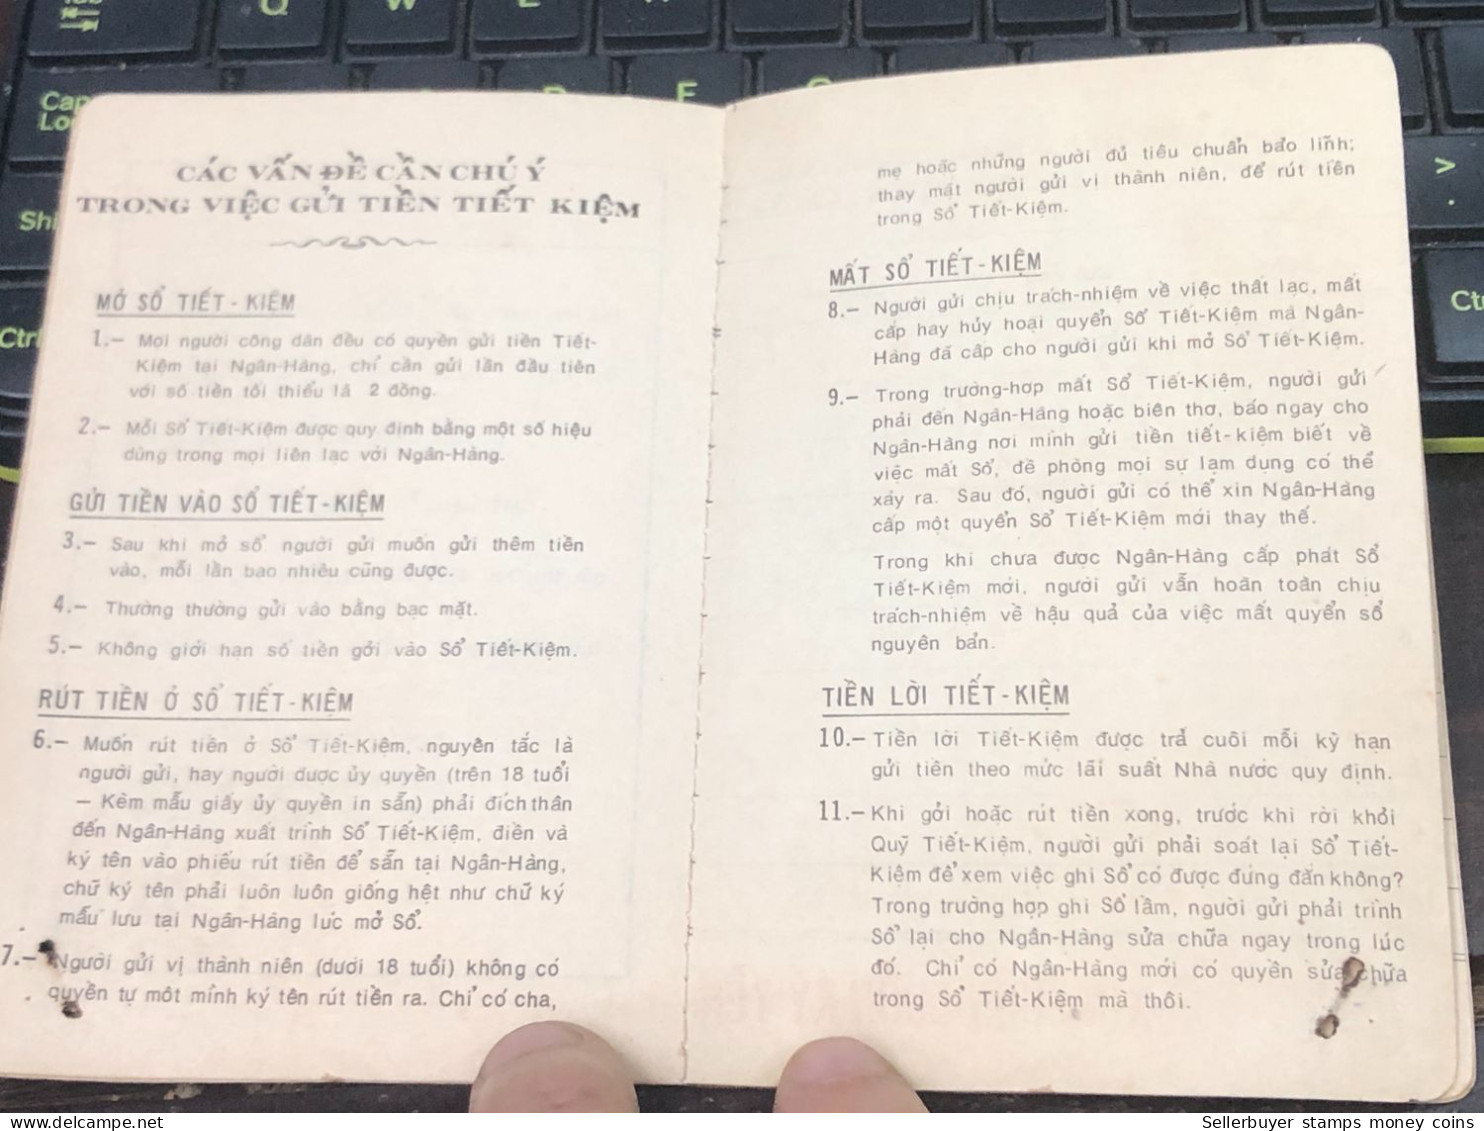 CÁC VẤN ĐỀ CẦN CHÚ Ý
TRONG VIỆC GỬI TIỀN TIẾT KIỆM
MỞ SỔ TIẾT - KIỆM
1.— Mọi người công dân đều có quyền gửi tiền Tiết-
Kiệm tại Ngân-Hàng, chỉ cần gửi lần đầu tiên
với số tiền tối thiểu là 2 đồng.
2.— Mỗi Sổ Tiết-Kiệm được quy định bằng một số hiệu
dùng trong mọi liên lạc với Ngân-Hàng.
GỬI TIỀN VÀO SỔ TIẾT - KIỆM
3.— Sau khi mở sổ người gửi muốn gửi thêm tiền
vào, mỗi lần bao nhiêu cũng được.
4.— Thường thường gửi vào bằng bạc mặt.
5.— Không giới hạn số tiền gởi vào Sổ Tiết-Kiệm.
RÚT TIỀN Ở SỔ TIẾT - KIỆM
6.— Muốn rút tiền ở Sổ Tiết-Kiệm, nguyên tắc là
người gửi, hay người được ủy quyền (trên 18 tuổi
— Kèm mẫu giấy ủy quyền in sẵn) phải đích thân
đến Ngân-Hàng xuất trình Sổ Tiết-Kiệm, điền và
ký tên vào phiếu rút tiền để sẵn tại Ngân-Hàng,
chữ ký tên phải luôn luôn giống hệt như chữ ký
mẫu lưu tại Ngân-Hàng lúc mở Sổ.
7.— Người gửi vị thành niên (dưới 18 tuổi) không có
quyền tự một mình ký tên rút tiền ra. Chỉ có cha,
mẹ hoặc những người đủ tiêu chuẩn bảo lĩnh;
thay mặt người gửi vị thành niên, để rút tiền
trong Sổ Tiết-Kiệm.
MẤT SỔ TIẾT - KIỆM
8.— Người gửi chịu trách-nhiệm về việc thất lạc, mất
cắp hay hủy hoại quyển Sổ Tiết-Kiệm mà Ngân-
Hàng đã cấp cho người gửi khi mở Sổ Tiết-Kiệm.
9.— Trong trường-hợp mất Sổ Tiết-Kiệm, người gửi
phải đến Ngân-Hàng hoặc biên thơ, báo ngay cho
Ngân-Hàng nơi mình gửi tiền tiết-kiệm biết về
việc mất Sổ, đề phòng mọi sự lạm dụng có thể
xảy ra. Sau đó, người gửi có thể xin Ngân-Hàng
cấp một quyển Sổ Tiết-Kiệm mới thay thế.
Trong khi chưa được Ngân-Hàng cấp phát Sổ
Tiết-Kiệm mới, người gửi vẫn hoàn toàn chịu
trách-nhiệm về hậu quả của việc mất quyển sổ
nguyên bản.
TIỀN LỜI TIẾT - KIỆM
10.— Tiền lời Tiết-Kiệm được trả cuối mỗi kỳ hạn
gửi tiền theo mức lãi suất Nhà nước quy định.
11.— Khi gởi hoặc rút tiền xong, trước khi rời khỏi
Quỹ Tiết-Kiệm, người gửi phải soát lại Sổ Tiết-
Kiệm để xem việc ghi Sổ có được đúng đắn không?
Trong trường hợp ghi Sổ lầm, người gửi phải trình
Sổ lại cho Ngân-Hàng sửa chữa ngay trong lúc
đó. Chỉ có Ngân-Hàng mới có quyền sửa chữa
trong Sổ Tiết-Kiệm mà thôi.
Sellerbuyer stamps money coins